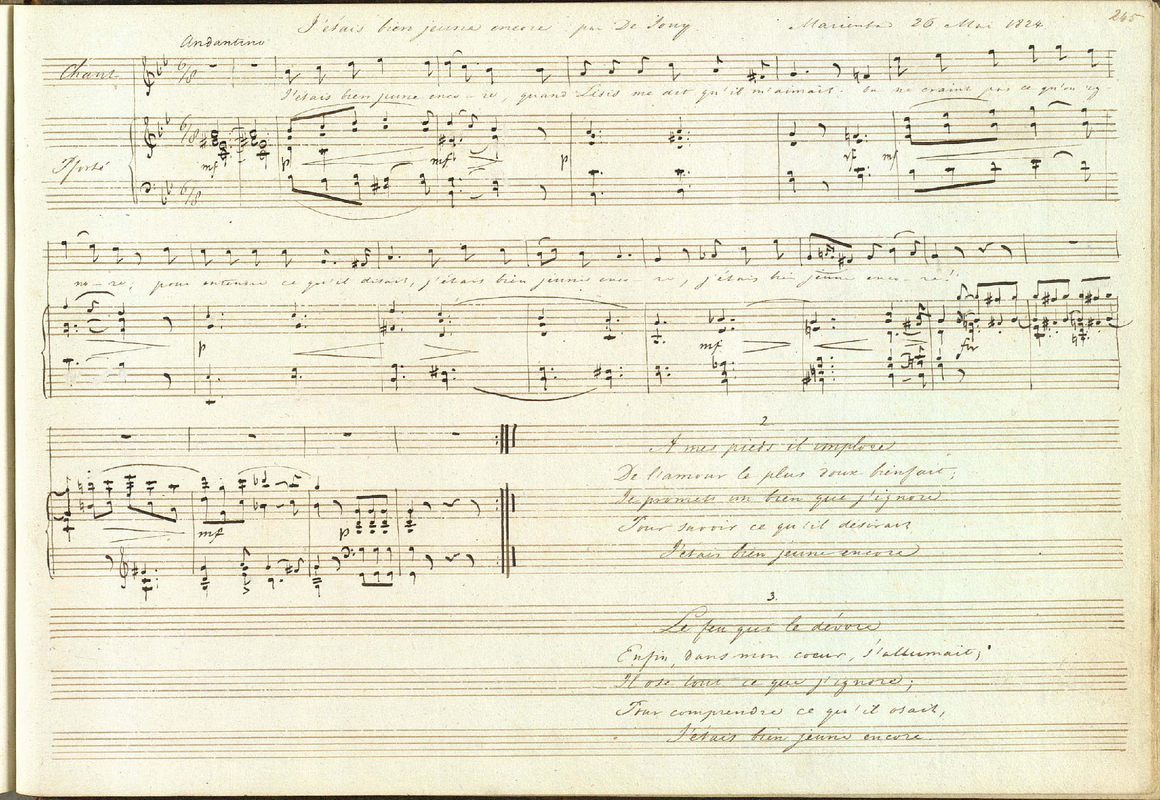 J'étais bien jeune encore par De Jouy.
26 Mai 1824
245
Andantino
Chant
J'étais bien jeune enco - re, quand Lisis me dit qu'il m'aimait. On ne craint pas ce qu'on ig-
Pforte
mf
p
mf
p
mf
no - re; pour entendre ce qu'il disait, j'étais bien jeune enco - re, j'étais bien jeune enco - re!
p
mf
mf
p
2
A mes pieds il implore
De l'amour le plus doux bienfait;
Je promets un bien que j'ignore
Pour savoir ce qu'il désirait
J'étais bien jeune encore
3.
Le feu qui le dévore
Enfin, dans mon coeur, s'allumait;
Il ose tout ce que j'ignore;
Pour comprendre ce qu'il osait,
J'étais bien jeune encore.